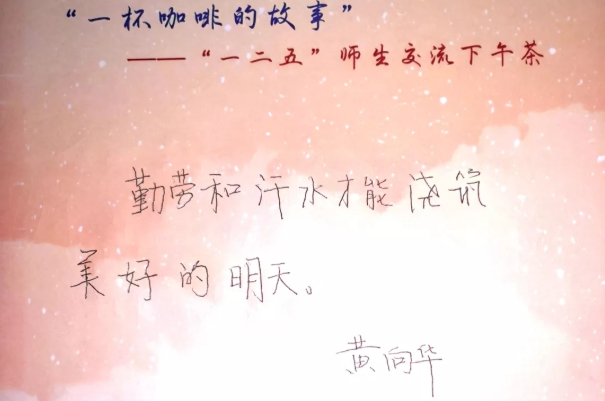 “一杯咖啡的故事”
——“一二五”师生交流下午茶
勤劳和汗水才能浇筑
美好的明天。
黄向华